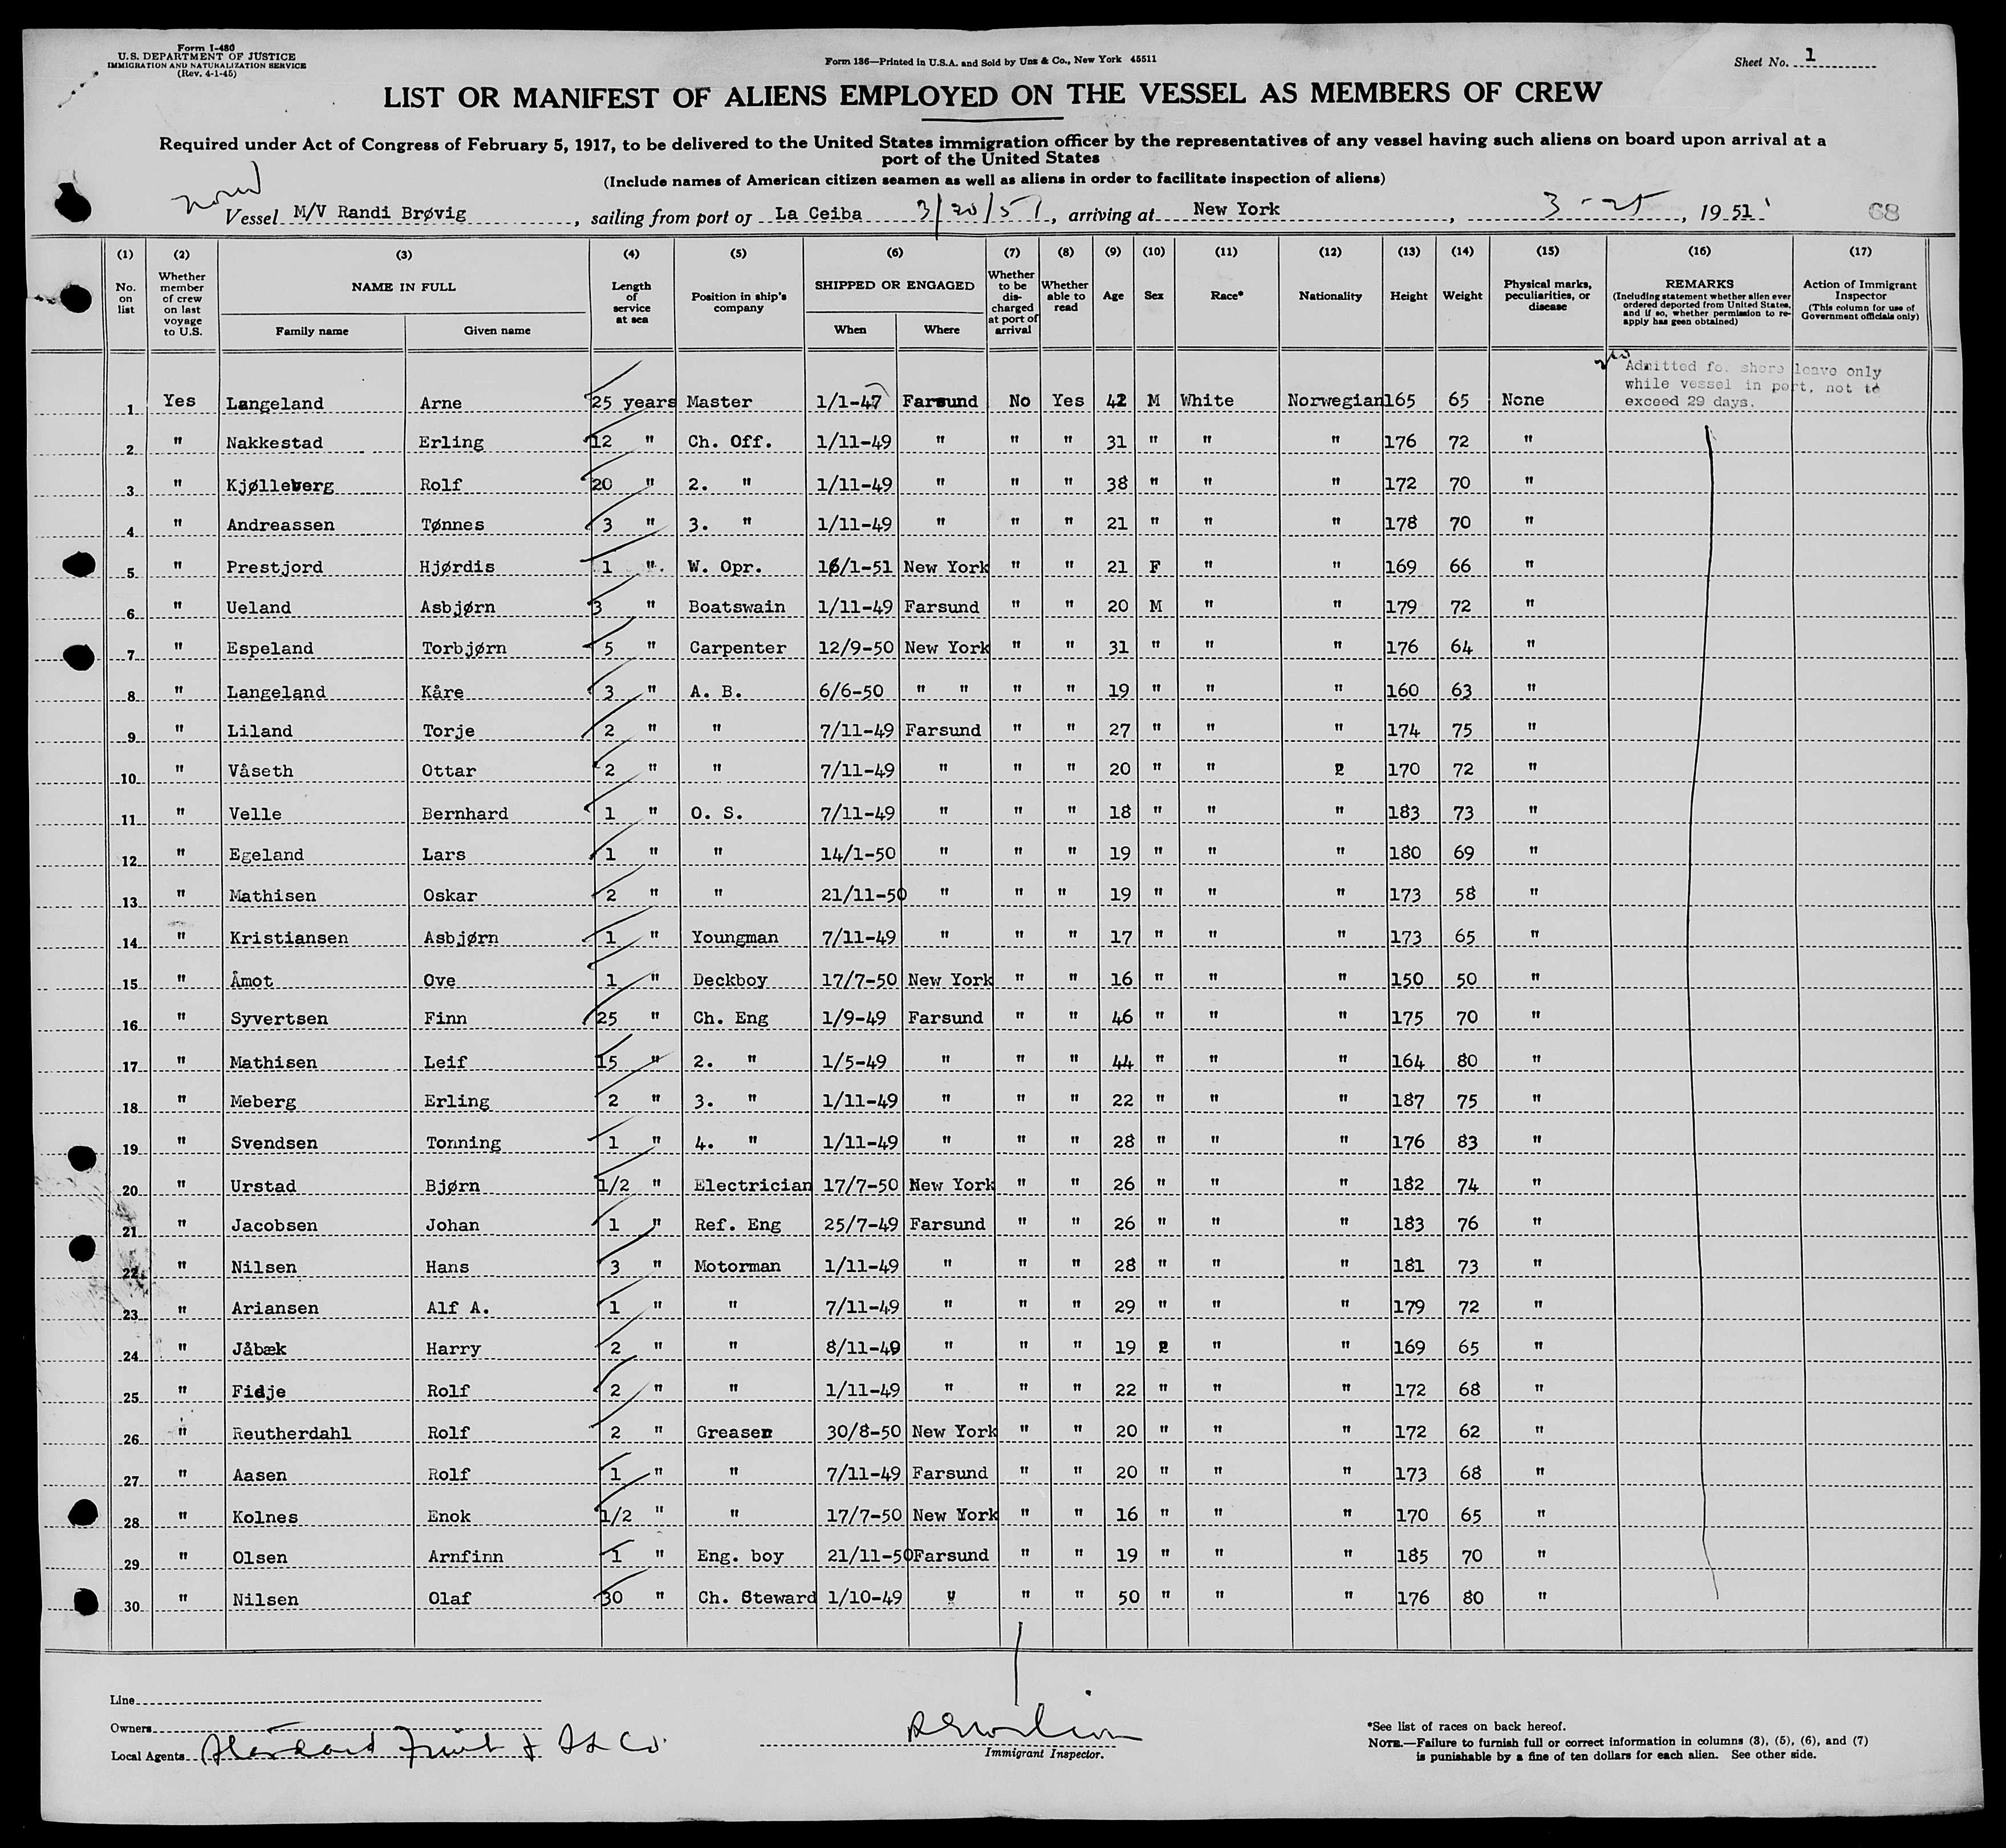 Form I-480
U.S. DEPARTMENT OF JUSTICE
IMMIGRATION AND NATURALIZATION SERVICE
(Rev. 4-1-45)
Form 136—Printed in U.S.A. and Sold by Unz & Co., New York 45511
Sheet No. 1
LIST OR MANIFEST OF ALIENS EMPLOYED ON THE VESSEL AS MEMBERS OF CREW
Required under Act of Congress of February 5, 1917, to be delivered to the United States immigration officer by the representatives of any vessel having such aliens on board upon arrival at a
port of the United States
(Include names of American citizen seamen as well as aliens in order to facilitate inspection of aliens)
Vessel M/V Randi Brøvig, sailing from port of La Ceiba 3/20/51, arriving at New York, 3-25, 1951 68
(1) (2) (3) (4) (5) (6) (7) (8) (9) (10) (11) (12) (13) (14) (15) (16) (17)
No. on list
Whether member of crew on last voyage to U.S.
NAME IN FULL
Family name Given name
Length of service at sea
Position in ship's company
SHIPPED OR ENGAGED
When Where
Whether to be discharged at port of arrival
Whether able to read
Age
Sex
Race*
Nationality
Height
Weight
Physical marks, peculiarities, or disease
REMARKS
(Including statement whether alien ever ordered deported from United States, and if so, whether permission to reapply has geen obtained)
Action of Immigrant Inspector
(This column for use of Government officials only)
Admitted fo. shore leave only
while vessel in port, not to
exceed 29 days.
1 Yes Langeland Arne 25 years Master 1/1-47 Farsund No Yes 42 M White Norwegian 165 65 None
2 " Nakkestad Erling 12 " Ch. Off. 1/11-49 " " " 31 " " " 176 72 "
3 " Kjølleberg Rolf 20 " 2. " 1/11-49 " " " 38 " " " 172 70 "
4 " Andreassen Tønnes 3 " 3. " 1/11-49 " " " 21 " " " 178 70 "
5 " Prestjord Hjørdis 1 " W. Opr. 16/1-51 New York " " 21 F " " 169 66 "
6 " Ueland Asbjørn 3 " Boatswain 1/11-49 Farsund " " 20 M " " 179 72 "
7 " Espeland Torbjørn 5 " Carpenter 12/9-50 New York " " 31 " " " 176 64 "
8 " Langeland Kåre 3 " A. B. 6/6-50 " " " " 19 " " " 160 63 "
9 " Liland Torje 2 " " 7/11-49 Farsund " " 27 " " " 174 75 "
10 " Våseth Ottar 2 " " 7/11-49 " " " 20 " " 2 170 72 "
11 " Velle Bernhard 1 " O. S. 7/11-49 " " " 18 " " " 183 73 "
12 " Egeland Lars 1 " " 14/1-50 " " " 19 " " " 180 69 "
13 " Mathisen Oskar 2 " " 21/11-50 " " " 19 " " " 173 58 "
14 " Kristiansen Asbjørn 1 " Youngman 7/11-49 " " " 17 " " " 173 65 "
15 " Åmot Ove 1 " Deckboy 17/7-50 New York " " 16 " " " 150 50 "
16 " Syvertsen Finn 25 " Ch. Eng 1/9-49 Farsund " " 46 " " " 175 70 "
17 " Mathisen Leif 15 " 2. " 1/5-49 " " " 44 " " " 164 80 "
18 " Meberg Erling 2 " 3. " 1/11-49 " " " 22 " " " 187 75 "
19 " Svendsen Tonning 1 " 4. " 1/11-49 " " " 28 " " " 176 83 "
20 " Urstad Bjørn 1/2 " Electrician 17/7-50 New York " " 26 " " " 182 74 "
21 " Jacobsen Johan 1 " Ref. Eng 25/7-49 Farsund " " 26 " " " 183 76 "
22 " Nilsen Hans 3 " Motorman 1/11-49 " " " 28 " " " 181 73 "
23 " Ariansen Alf A. 1 " " 7/11-49 " " " 29 " " " 179 72 "
24 " Jåbæk Harry 2 " " 8/11-49 " " " 19 2 " " 169 65 "
25 " Fidje Rolf 2 " " 1/11-49 " " " 22 " " " 172 68 "
26 " Reutherdahl Rolf 2 " Greaser 30/8-50 New York " " 20 " " " 172 62 "
27 " Aasen Rolf 1 " " 7/11-49 Farsund " " 20 " " " 173 68 "
28 " Kolnes Enok 1/2 " " 17/7-50 New York " " 16 " " " 170 65 "
29 " Olsen Arnfinn 1 " Eng. boy 21/11-50 Farsund " " 19 " " " 185 70 "
30 " Nilsen Olaf 30 " Ch. Steward 1/10-49 " " " 50 " " " 176 80 "
Line
Owners
Local Agents Standard Fruit & SS Co.
Immigrant Inspector.
*See list of races on back hereof.
NOTE.—Failure to furnish full or correct information in columns (3), (5), (6), and (7)
is punishable by a fine of ten dollars for each alien. See other side.